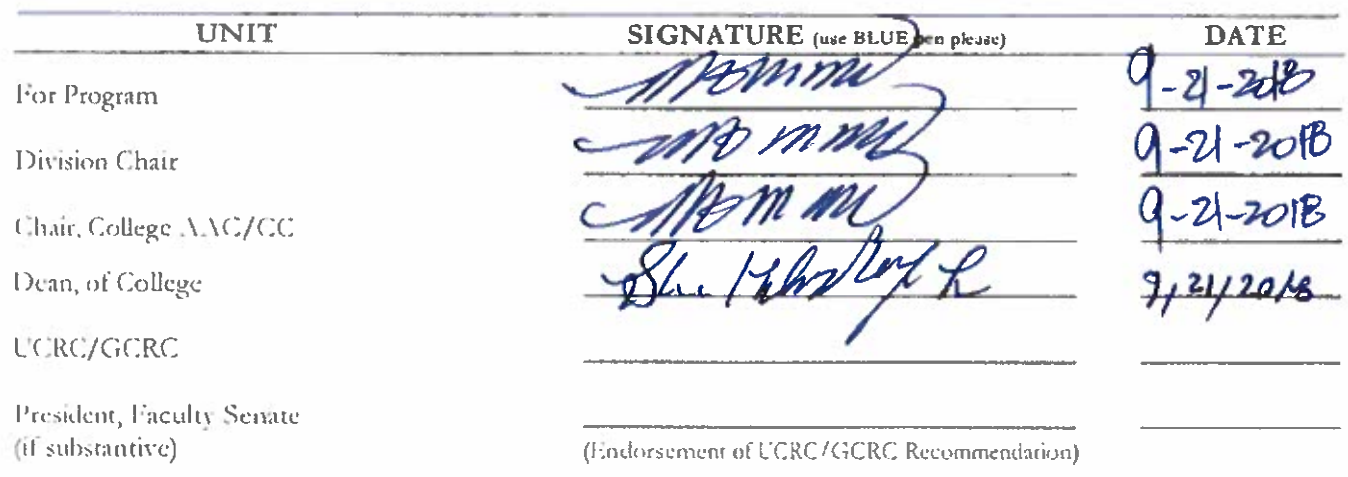 UNIT SIGNATURE (use BLUE pen please) DATE
For Program 9-21-2018
Division Chair 9-21-2018
Chair, College AAC/CC 9-21-2018
Dean, of College 9/21/2018
UCRC/GCRC
President, Faculty Senate
(if substantive) (Endorsement of UCRC/GCRC Recommendation)